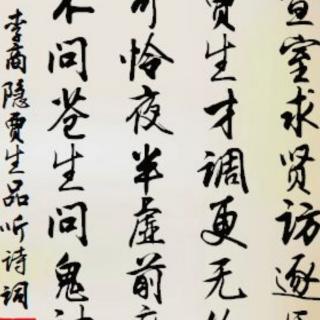 宣室求贤访逐臣
贾生才调更无伦
可怜夜半虚前席
不问苍生问鬼神
李商隐贾生品听诗词